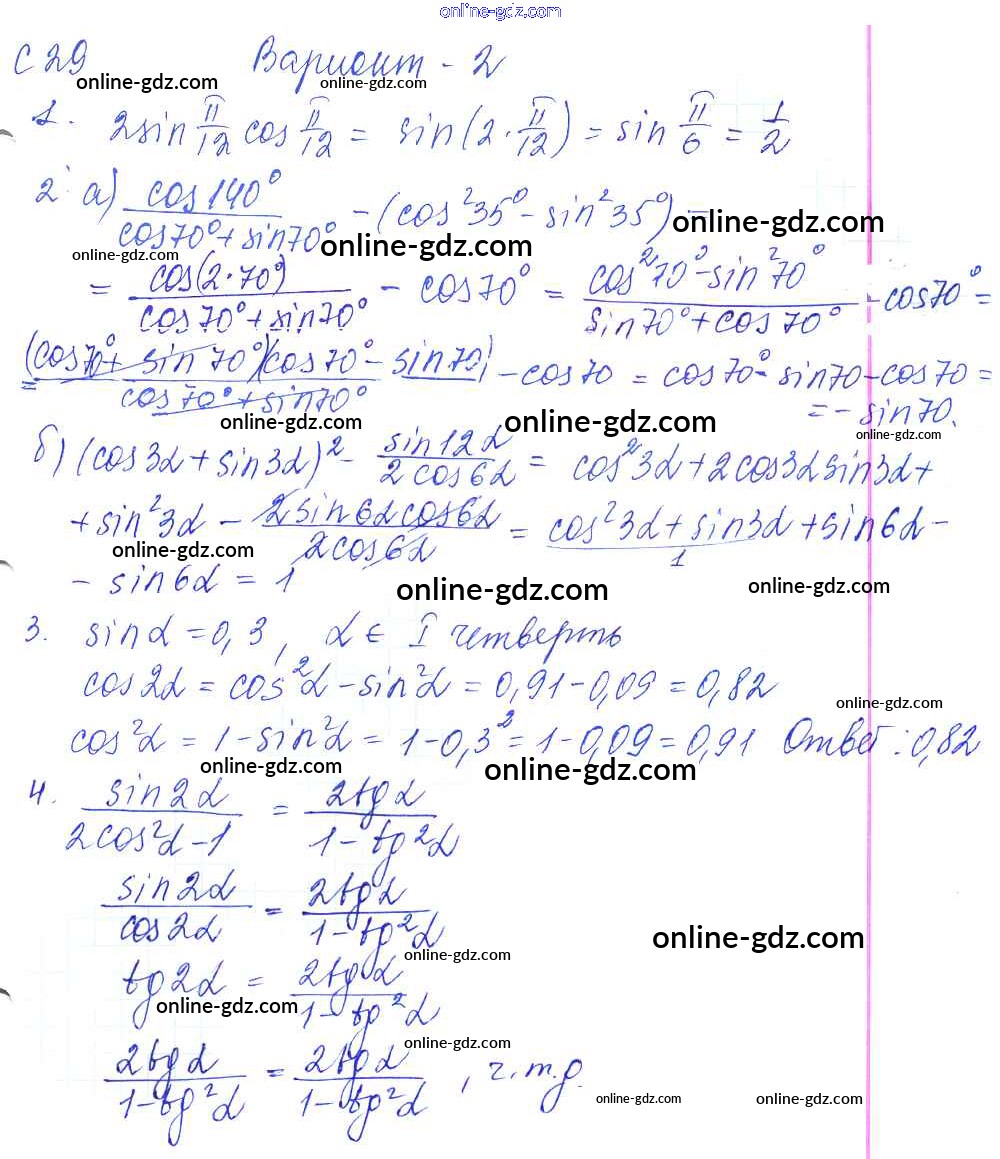 online-gdz.com
С 29 Вариант - 2
online-gdz.com online-gdz.com
1. 2sin π/12 cos π/12 = sin(2·π/12) = sin π/6 = 1/2
2. а) cos140°/(cos70°+sin70°) - (cos²35° - sin²35°) =
online-gdz.com online-gdz.com online-gdz.com
= cos(2·70°)/(cos70°+sin70°) - cos70° = (cos²70°-sin²70°)/(sin70°+cos70°) - cos70° =
= (cos70°+ sin70°)(cos70° - sin70)/(cos70°+sin70°) - cos70 = cos70° - sin70-cos70 =
= - sin70.
online-gdz.com online-gdz.com
б) (cos3α + sin3α)² - sin12α/(2cos6α) = cos²3α+2cos3αsin3α+
+ sin²3α - 2sin6αcos6α/(2cos6α) = cos²3α + sin3α + sin6α -
1
online-gdz.com
- sin6α = 1
online-gdz.com online-gdz.com
3. sinα = 0,3, α ∈ I четверть
cos2α = cos²α - sin²α = 0,91-0,09 = 0,82
online-gdz.com
cos²α = 1-sin²α = 1-0,3² = 1-0,09 = 0,91 Ответ: 0,82
online-gdz.com online-gdz.com
4. sin2α/(2cos²α-1) = 2tgα/(1-tg²α)
sin2α/cos2α = 2tgα/(1-tg²α)
online-gdz.com
online-gdz.com
tg2α = 2tgα/(1-tg²α)
online-gdz.com
online-gdz.com
2tgα/(1-tg²α) = 2tgα/(1-tg²α), ч.т.д.
online-gdz.com online-gdz.com